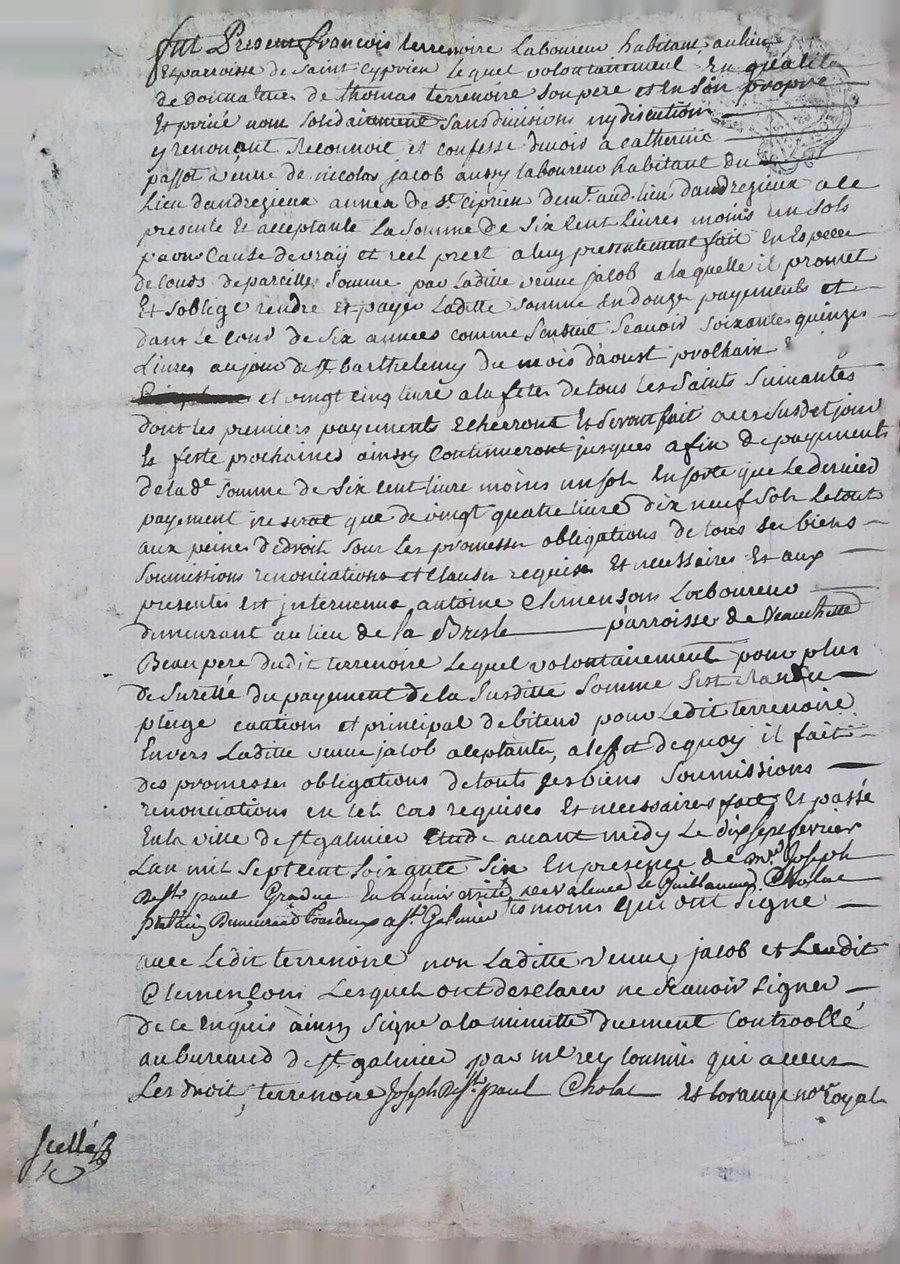 fut Present francois terrenoire Laboureur habitant au lieu
Et parroisse de Saint Cyprien Lequel volontairement En qualité
de donnataire de thomas terrenoire son pere et En Son propre
Et privé nom solidairement sans divisions ny discution
y renonçant Reconnoit et confesse devoir a catherine
passot veuve de nicolas jacob aussy laboureur habitant du
Lieu dandrezieux annex de st Ciprien demt. aud. lieu dandrezieux a ce
presente Et acceptante La Somme de Six Cent Livres moins un Sols
pour Cause de vraÿ et réel prest a luy presentement fait En Especes
de Cours de pareille Somme par Laditte veuve jacob a laquelle il promet
Et soblige rendre Et payer Laditte Somme En douze payements et
dans le cour de Six années comme Sensuit Scavoir Soixantes quinzes
Livres au jour de st barthelemy du mois daoust prochain
et vingt cinq livre a la fête de tous les Saints Suivantes
dont les premiers payements Echerront Et Seront fait aux Susdet jour
Et feste prochaines ainssy Continueront jusques a fin de payements
de la de Somme de Six cent livre moins un sols En sorte que Le dernier
payement ne serat que de vingt quatre livre dix neuf Sols Le tout
aux peines de droit Sous les promesses obligations de tous ses biens
Soumissions renonciations et clauses requises Et necessaires Et aux
presentes Est jntervenus antoine Clemensons Laboureur
demeurant au lieu de la parroisse de Veauchette
Beau pere dudit terrenoire Lequel volontairement pour plus
de Suretté du payement de la Susditte Somme Sest Randu
pleige cautions et principal debiteur pour Ledit terrenoire
Envers Laditte veuve jacob aceptante, a leffet dequoy il fait
des promesses obligations de touts ses biens Soumissions
renonciations en tel cas requises Et necessaires fait Et passé
En la ville de st galmier Etude avant midy Le dix sept fevrier
Lan mil Sept cent Soixante Six En presence de mre. Joseph
paul Gradué En Luniversité de valence Et Guillaume Cholat
praticien Demeurants tous deux a st. Galmier temoins qui ont Signé
avec Ledit terrenoire non Laditte veuve jacob et Ledit
Clemençons Lesquels ont desclarer ne Scavoir Signer
de ce Enquis ainssy Signé a la minutte duement Controollé
au bureaud de st galmier par mr rey commis qui a recu
Les droit, terrenoire Joseph paul Cholat Et noe royal
Scellé